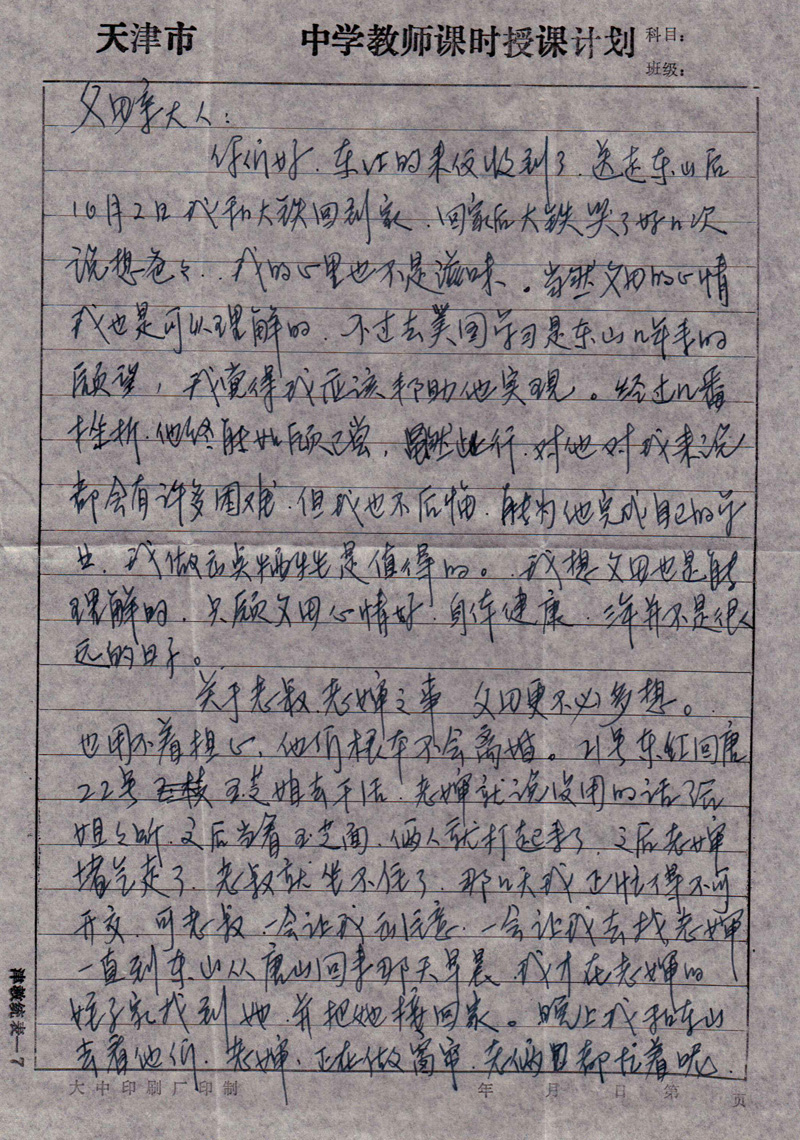 天津市 中学教师课时授课计划 科目：
班级：
父母亲大人：
你们好．东江的来信收到了．送走东山后
10月2日我和大铁回到家．回家后大铁哭了好几次
说想爸々．．我的心里也不是滋味。当然父母的心情
我也是可以理解的．不过去美国学习是东山几年来的
愿望，我觉得我应该帮助他实现。经过几番
挫折．他终能如愿已尝，虽然此行．对他对我来说
都会有许多困难．但我也不后悔．能为他完成自己的学
业．我做点牺牲是值得的。我想父母也是能
理解的．只愿父母心情好．身体健康．三年并不是很
远的日子。
关于老叔．老婶之事 父母更不必多想。
也用不着担心．他们根本不会离婚。21号东红回唐
22号 玉芝姐去干活．老婶就说没用的话给
姐々听．之后当着玉芝面．俩人就打起来了．之后老婶
堵气走了．老叔就坐不住了．那几天我正忙得不可
开交．可老叔一会让我注意．一会让我去找老婶
一直到东山从唐山回来那天早晨．我才在老婶的
侄子家找到她．并把她接回家。晚上我和东山
去看他们．老婶．正在做窗帘．老俩口都忙着呢．
津教统表—7
大中印刷厂印制 年 月 日 第 页